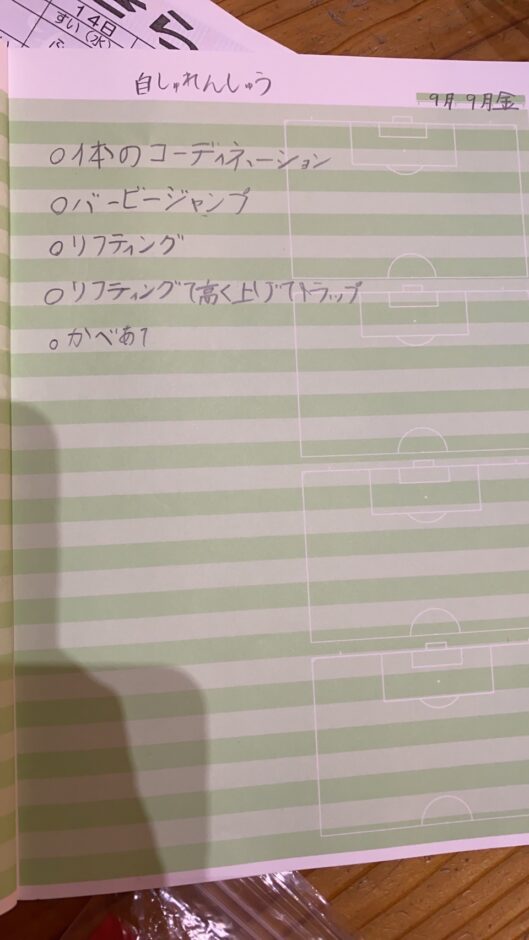 14日
すい(水)
5
自しゅれんしゅう
9月9月金
○体のコーディネーション
○バービージャンプ
○リフティング
○リフティングで高く上げてトラップ
○かべあて